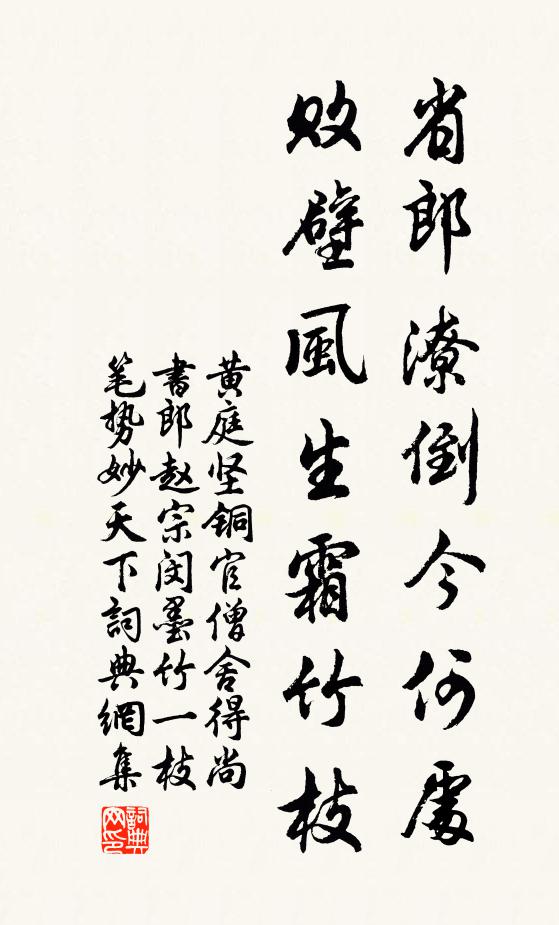 省郎潦倒今何處
敗壁風生霜竹枝
黄庭坚铜官僧舍得尚
書郎赵宗闵墨竹一枝
笔势妙天下詞典網集
詞典
网印